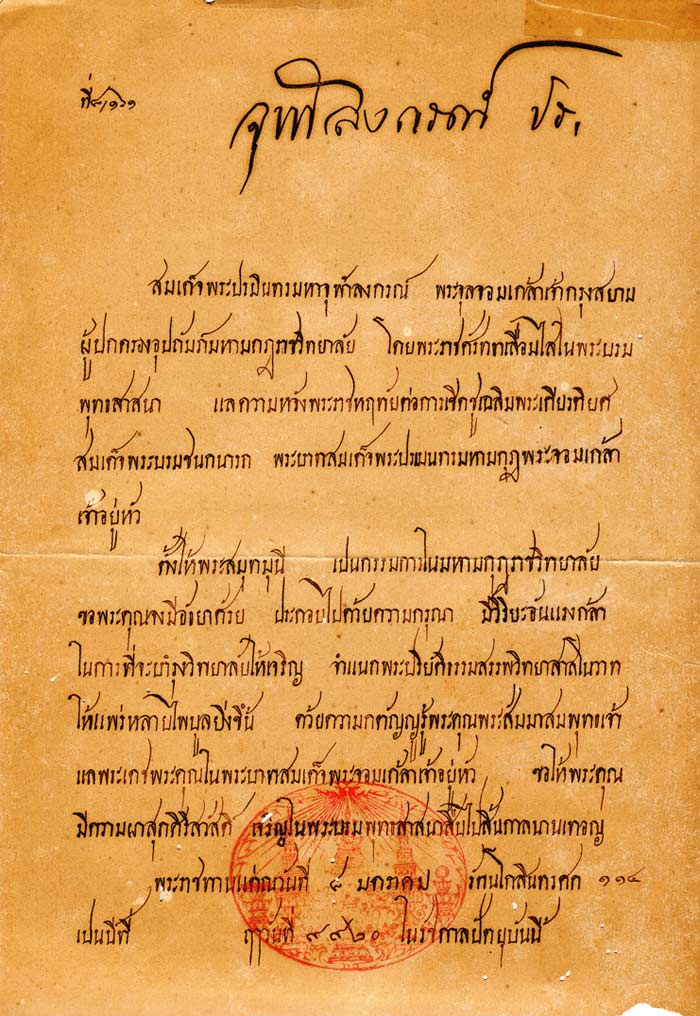 ที่ ๘/๑๖๑
จุฬาลงกรณ์ ปร.
สมเด็จพระปรมินทรมหาจุฬาลงกรณ์ พระจุลจอมเกล้าเจ้ากรุงสยาม
ผู้ปกครองอุปถัมภ์มหามกุฎราชวิทยาลัย โดยพระราชศรัทธาเลื่อมใสในพระบรม
พุทธสาสนา แลความหวังพระราชหฤทัยต่อการเชิดชูเฉลิมพระเกียรติยศ
สมเด็จพระบรมชนกนารถ พระบาทสมเด็จพระปรเมนทรมหามกุฎพระจอมเกล้า
เจ้าอยู่หัว
ตั้งให้พระสมุทมุนี เปนกรรมการในมหามกุฎราชวิทยาลัย
ขอพระคุณจงมีอัธยาศรัย ประกอบไปด้วยความกรุณา มีวิริยะอันแรงกล้า
ในการที่จะบำรุงวิทยาลัยให้เจริญ จำแนกพระปริยัติธรรมสรรพวิทยาสาตร
ให้แพร่หลายไพบูลยิ่งขึ้น ด้วยความกตัญญูรู้พระคุณพระสัมมาสมพุทธเจ้า
แลพระเดชพระคุณในพระบาทสมเด็จพระจอมเกล้าเจ้าอยู่หัว ขอให้พระคุณ
มีความผาสุกศิริสวัสดิ์ เจริญในพระบรมพุทธสาสนาสืบไปสิ้นกาลนานเทอญ
พระราชทานแต่ณวันที่ ๘ มกราคม รัตนโกสินทรศก ๑๑๔
เปนปีที่ ฤๅวันที่ ๙๙๒๐ ในรัชกาลปัตยุบันนี้